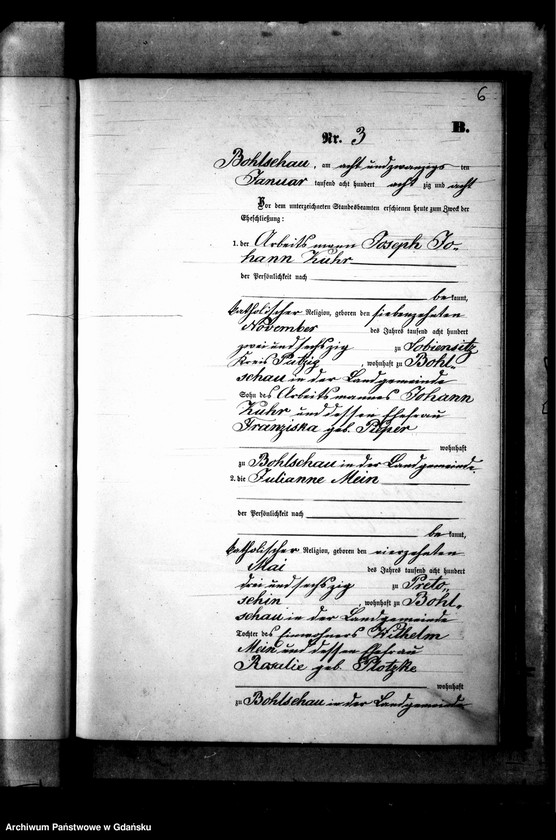 6
B.
Nr. 3
Bohlschau, am acht und zwanzigs ten
Januar tausend acht hundert acht zig und acht
Vor dem unterzeichneten Standesbeamten erschienen heute zum Zweck der
Eheschließung:
1. der Arbeitsmann Joseph Jo-
hann Kuhr
der Persönlichkeit nach
be kannt,
katholischer Religion, geboren den siebenzehnten
November des Jahres tausend acht hundert
zwei und sechszig zu Sobiensitz
Kreis Putzig, wohnhaft zu Bohl-
schau in der Landgemeinde
Sohn des Arbeitsmannes Johann
Kuhr und dessen Ehefrau
Franziska geb. Pieper
wohnhaft
zu Bohlschau in der Landgemeinde
2. die Julianne Mein
der Persönlichkeit nach
be kannt,
katholischer Religion, geboren den vierzehnten
Mai des Jahres tausend acht hundert
drei und sechszig zu Preto-
schin, wohnhaft zu Bohl-
schau in der Landgemeinde
Tochter des Einwohners Wilhelm
Mein und dessen Ehefrau
Rosalie geb. Plotzke
wohnhaft
zu Bohlschau in der Landgemeinde
Archiwum Państwowe w Gdańsku